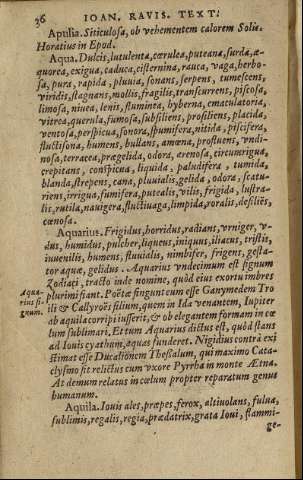 36 IOAN. RAVIS. TEXT.
Apulia. Siticulosa, ob vehementem calorem Solis.
Horatius in Epod.
Aqua. Dulcis, lutulenta, cœrulea, puteana, surda, æ-
quorea, exigua, caduca, cisternina, rauca, vaga, herbo-
sa, pura, rapida, pluuia, sonans, serpens, tumescens,
viridis, stagnans, mollis, fragilis, transcurrens, piscosa,
limosa, niuea, lenis, fluminea, hyberna, emaculatoria,
vitrea, querula, fumosa, subsiliens, prosiliens, placida,
ventosa, perspicua, sonora, spumifera, nitida, piscifera,
fluctisona, humens, bullans, amœna, profluens, vndi-
nosa, terracea, prægelida, odora, arenosa, circumrigua,
crepitans, conspicua, liquida, paludifera, tumida,
blanda, strepens, cana, pluuialis, gelida, odora, scatu-
riens, irrigua, fumifera, putealis, vilis, frigida, lustra-
lis, rutila, nauigera, fluctiuaga, limpida, roralis, desiliēs,
cœnosa.
Aquarius. Frigidus, horridus, radians, vrniger, v-
dus, humidus, pulcher, liqueus, iniquus, iliacus, tristis,
iuuenilis, humens, fluuialis, nimbifer, frigens, gesta-
tor aquæ, gelidus. Aquarius vndecimum est signum
Zodiaci, tracto inde nomine, quòd eius exortu imbres
Aqua-
rius si-
gnum.
plurimi fiant. Poëtæ fingunt eum esse Ganymedem Tro
ili & Callyroës filium, quem in Ida venantem, Iupiter
ab aquila corripi iusserit, & ob elegantem formam in cœ
lum sublimari. Et tum Aquarius dictus est, quòd stans
ad Iouis cyathum, aquas funderet. Nigidius contrà exi
stimat esse Ducalionem Thessalum, qui maximo Cata-
clysmo sit relictus cum vxore Pyrrha in monte Ætna.
At demum relatus in cœlum propter reparatum genus
humanum.
Aquila. Iouis ales, præpes, ferox, altiuolans, fulua,
sublimis, regalis, regia, prædatrix, grata Ioui, flammi-
ge-